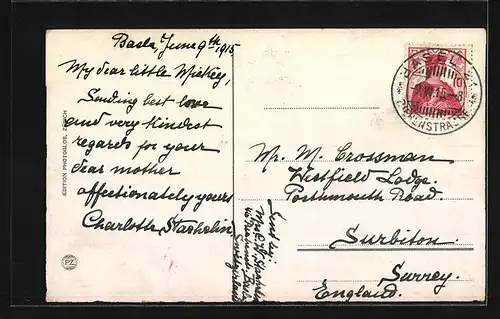 Basle, June 9th 1915
My dear little Mickey,
Sending best love
and very kindest
regards for your
dear mother
affectionately yours
Charlotte Staehelin
Mr. M. Crossman
Westfield Lodge.
Porthmouth Road.
Surbiton
Surrey.
England.
Sent by:
Switzerland
EDITION PHOTOGLOB, ZÜRICH
PZ
BASEL
10